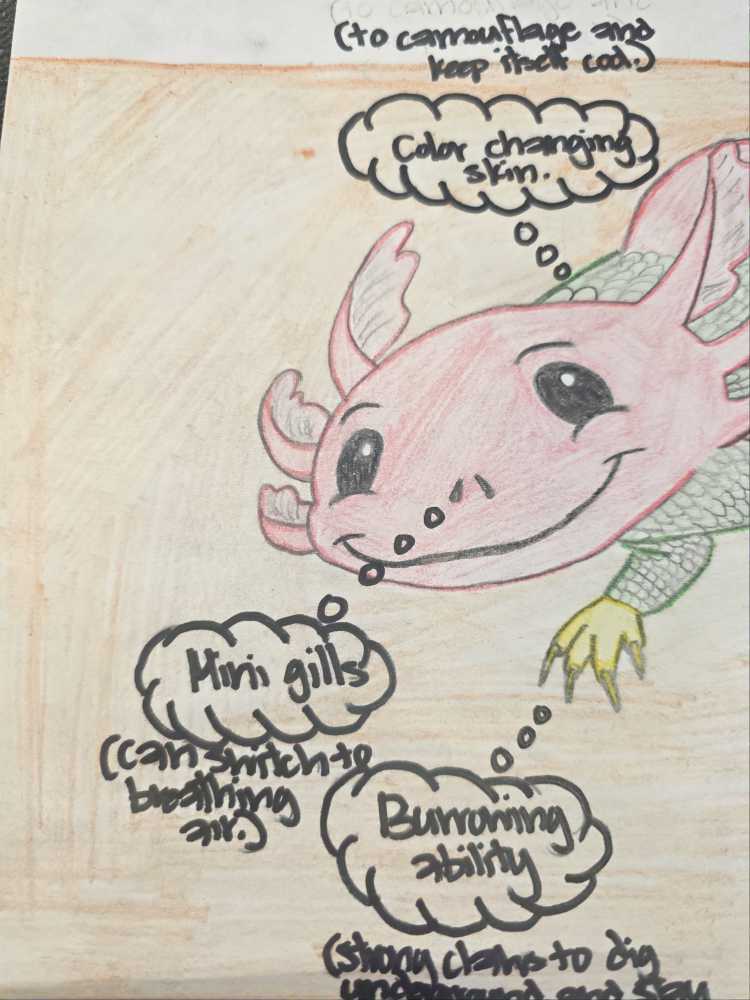 (to camouflage and
keep itself cool.)
Color changing
skin.
Mini gills
(can switch to
breathing
air.)
Burrowing
ability
(strong claws to dig
underground and stay